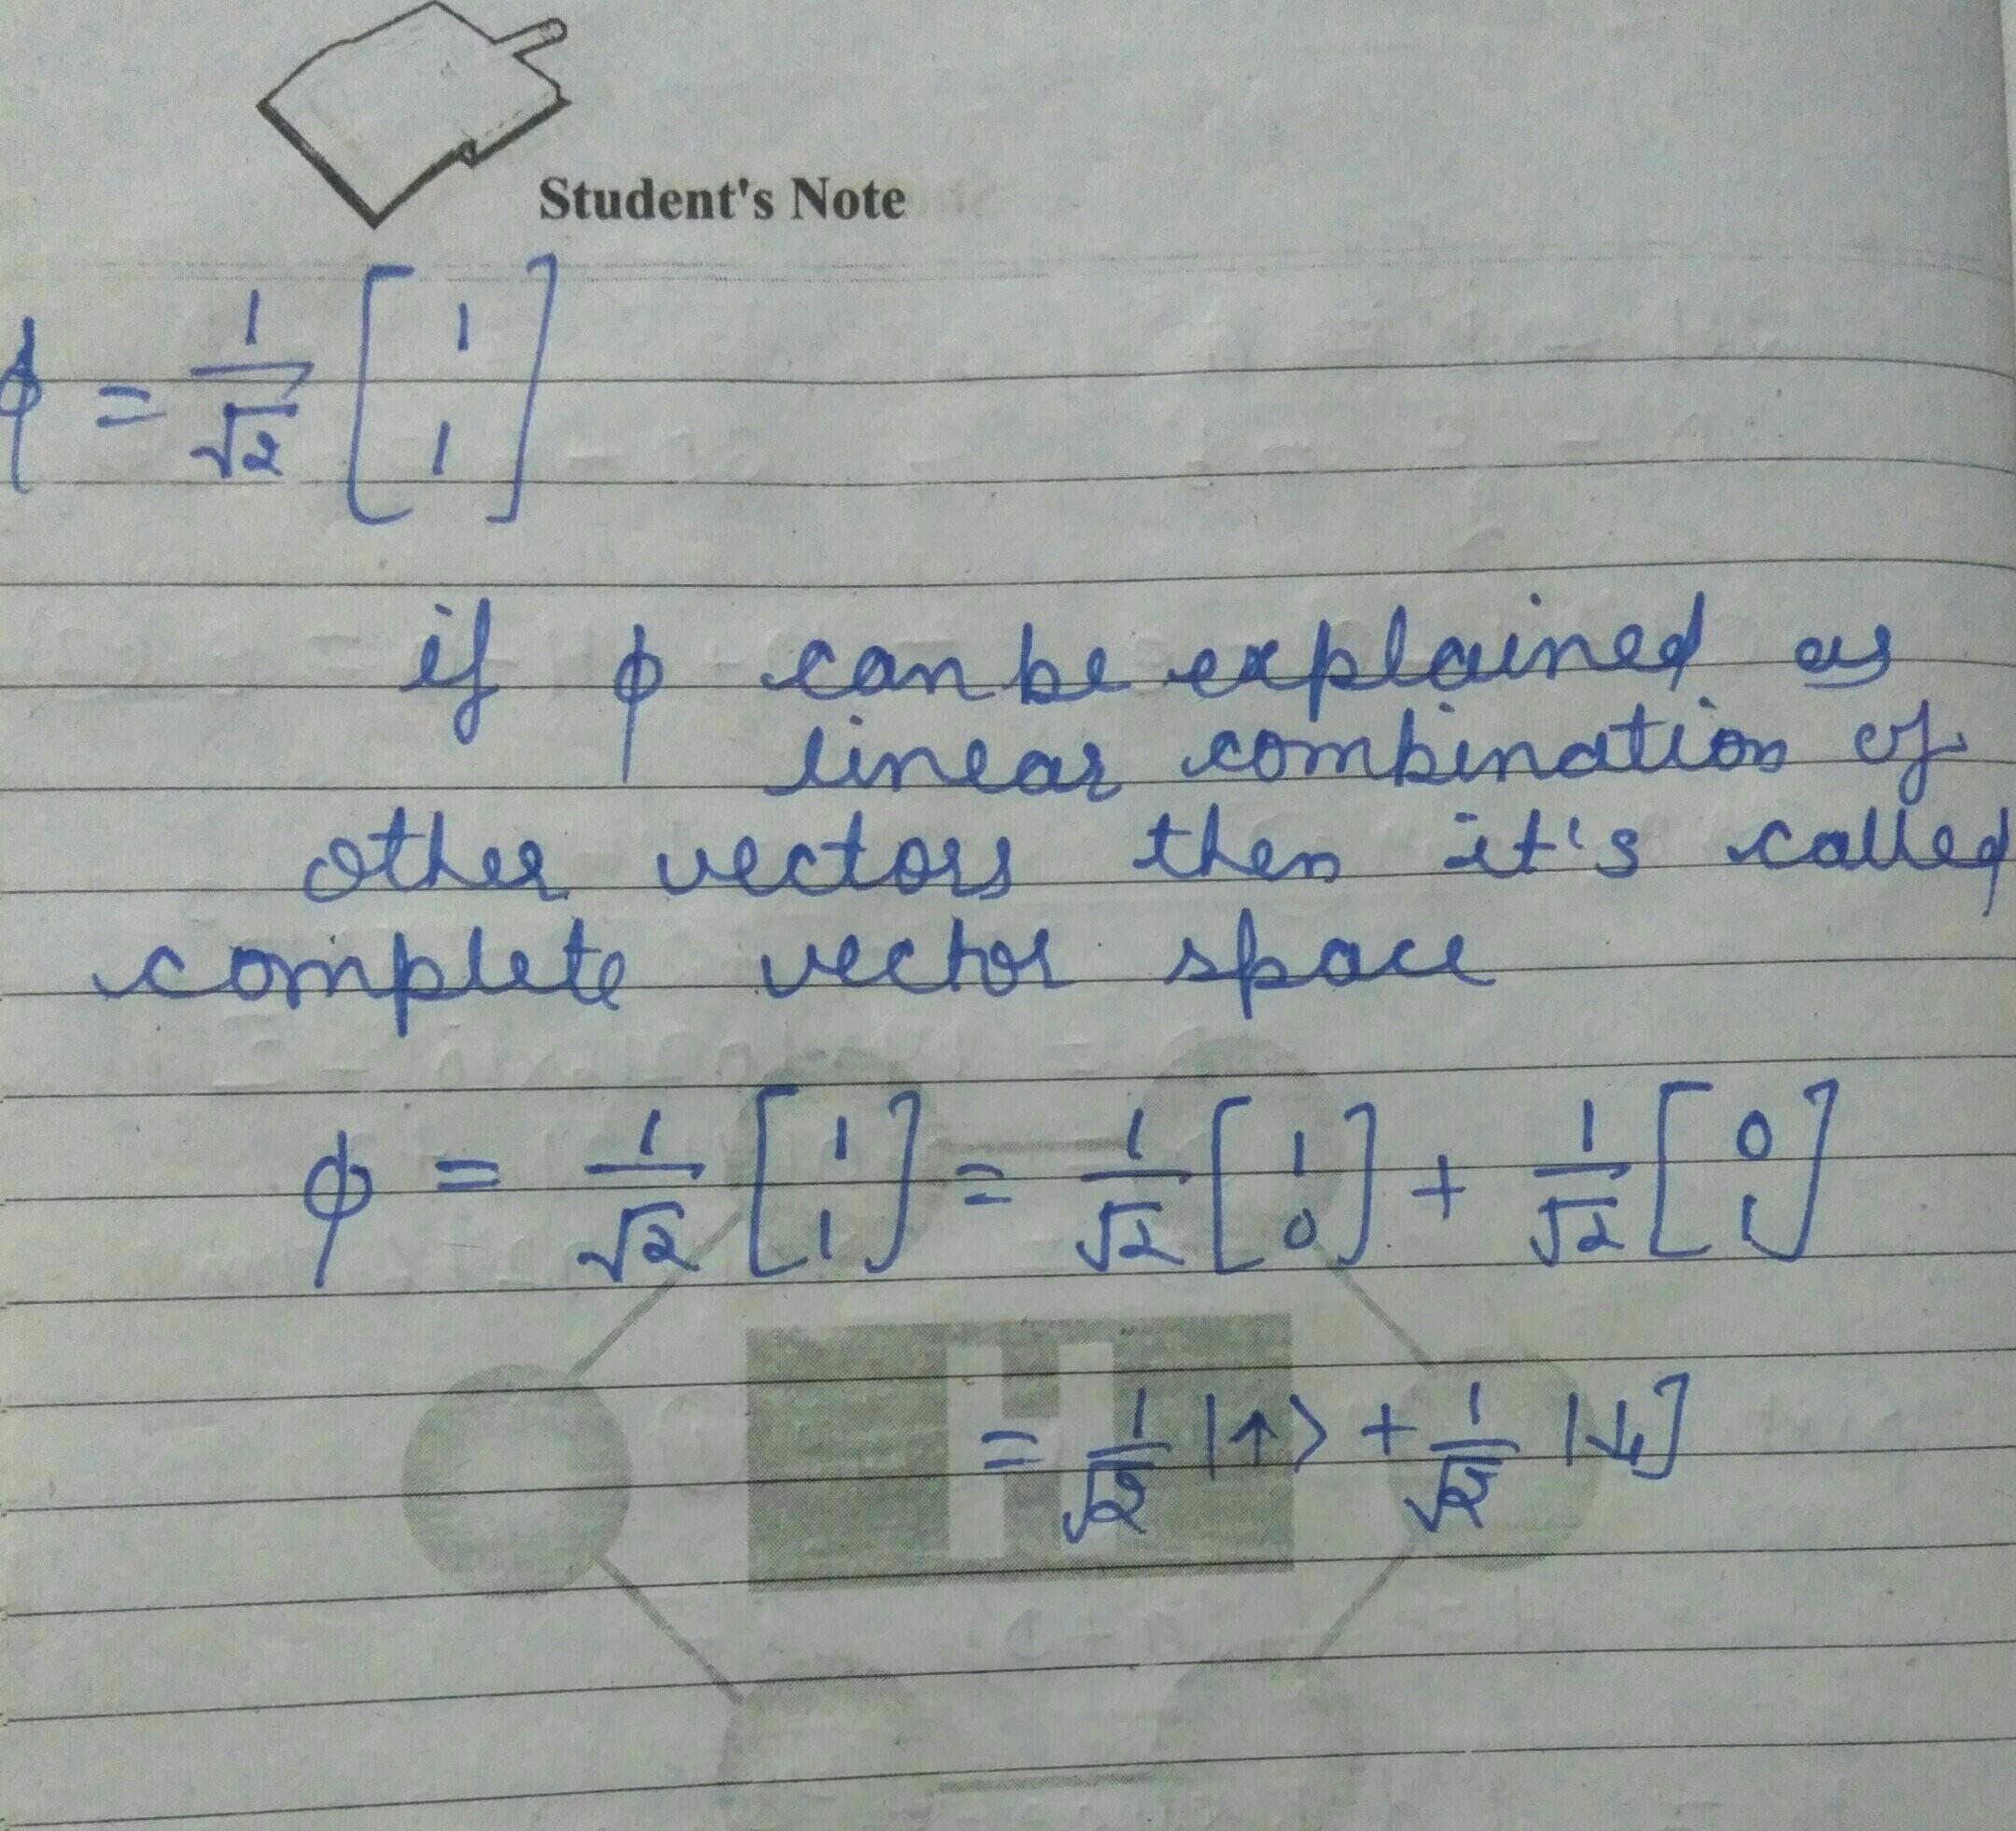 Student's Note
ϕ = 1/√2 [1 1]
if ϕ can be explained as
linear combination of
other vectors then it's called
complete vector space
ϕ = 1/√2 [1 1] = 1/√2 [1 0] + 1/√2 [0 1]
H
= 1/√2 |↑⟩ + 1/√2 |↓]